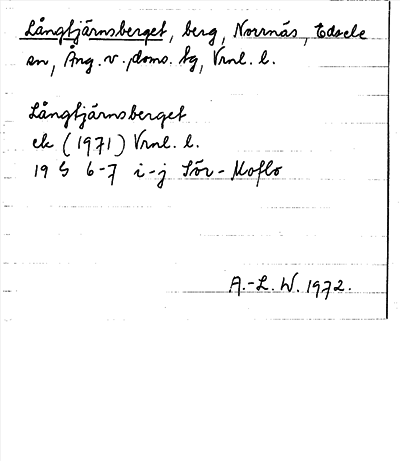 Långtjärnsberget, berg, Norrnäs, Edsele
sn, Ång. v. doms. tg, Vrnl. l.
Långtjärnsberget
ek (1971) Vrnl. l.
19 G 6-7 i-j Sör-Moflo
A.-L. W. 1972.